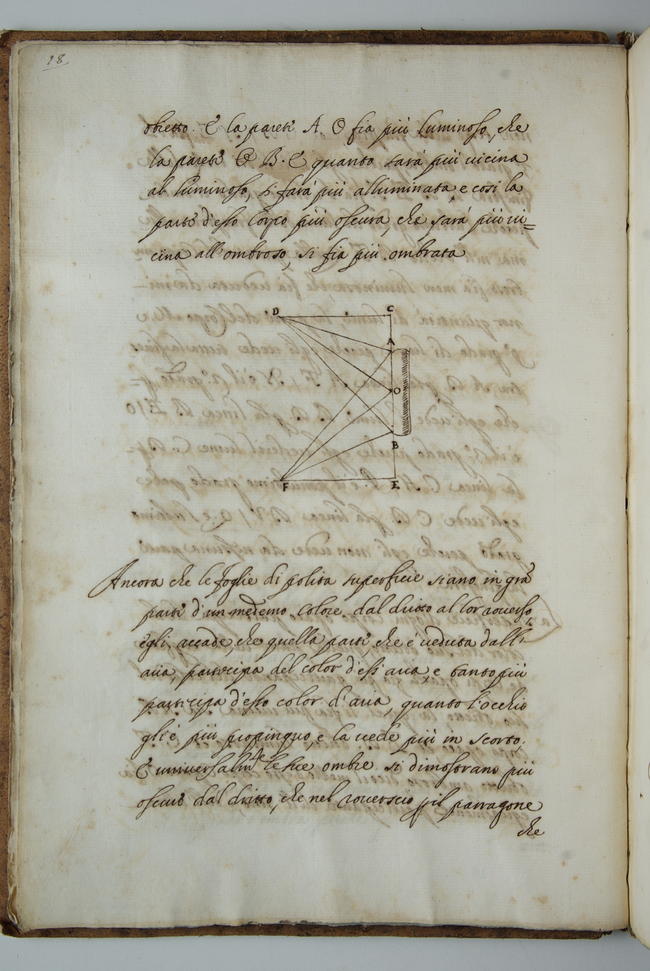 28
obietto. E la parete A. O fia più luminosa, che
la parete O B. E quanto sarà più vicina
al luminoso, si farà più alluminata, e così la
parte d'esso corpo più oscura, che sarà più vi=
cina all'ombroso, si fia più ombrata
D C
A
O
B
F E
Ancora che le foglie di polita superficie siano in grã
parte d'un medemo colore dal dritto al lor rouerso,
egli accade, che quella parte che è veduta dall'
aria participa del color d'ess' aria, e tanto più
participa d'esso color d'aria, quanto l'occhio
gl'è più propinquo, e la vede più in scorto,
E universalmte le sue ombre si dimostrano più
oscure dal dritto, che nel rouerscio, p il parragone
che